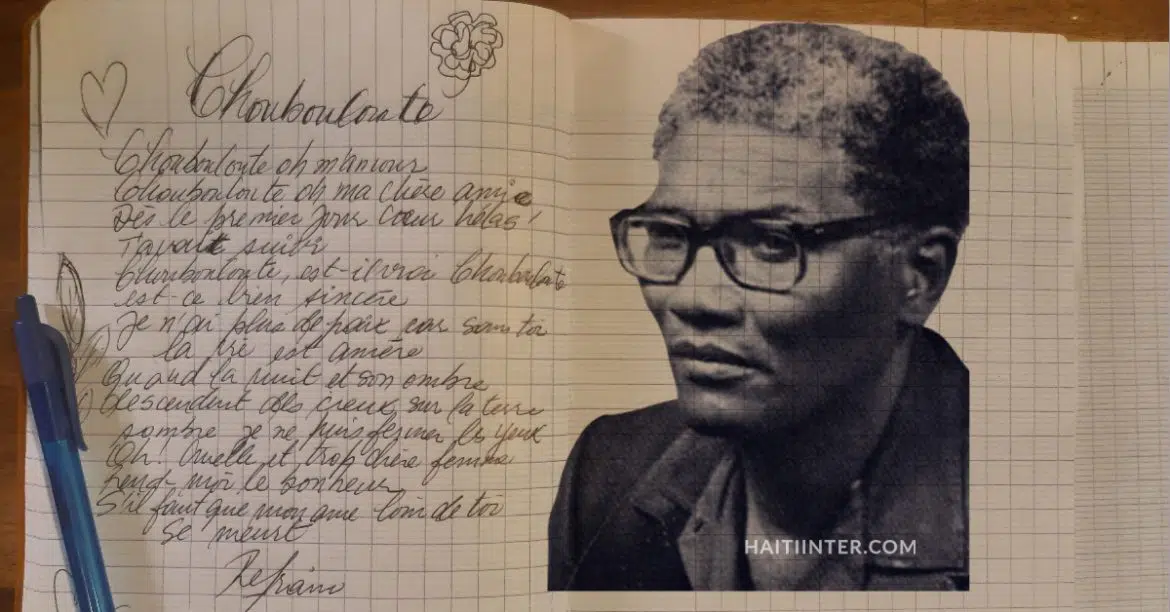 Choubouloute
Choubouloute oh m'amour
Choubouloute oh ma chère amie
Dès le premier jour cœur hélas!
T'avait suivi
Choubouloute, est-il vrai Choubouloute
est-ce bien sincère
Je n'ai plus de paix car sans toi
la vie est amère
Quand la nuit et son ombre
descendent des cieux sur la terre
sombre je ne puis fermer les yeux
Oh! Cruelle et trop chère femme
Rend-moi le bonheur
S'il faut que mon ame loin de toi
se meurt
Refrain
HAITIINTER.COM